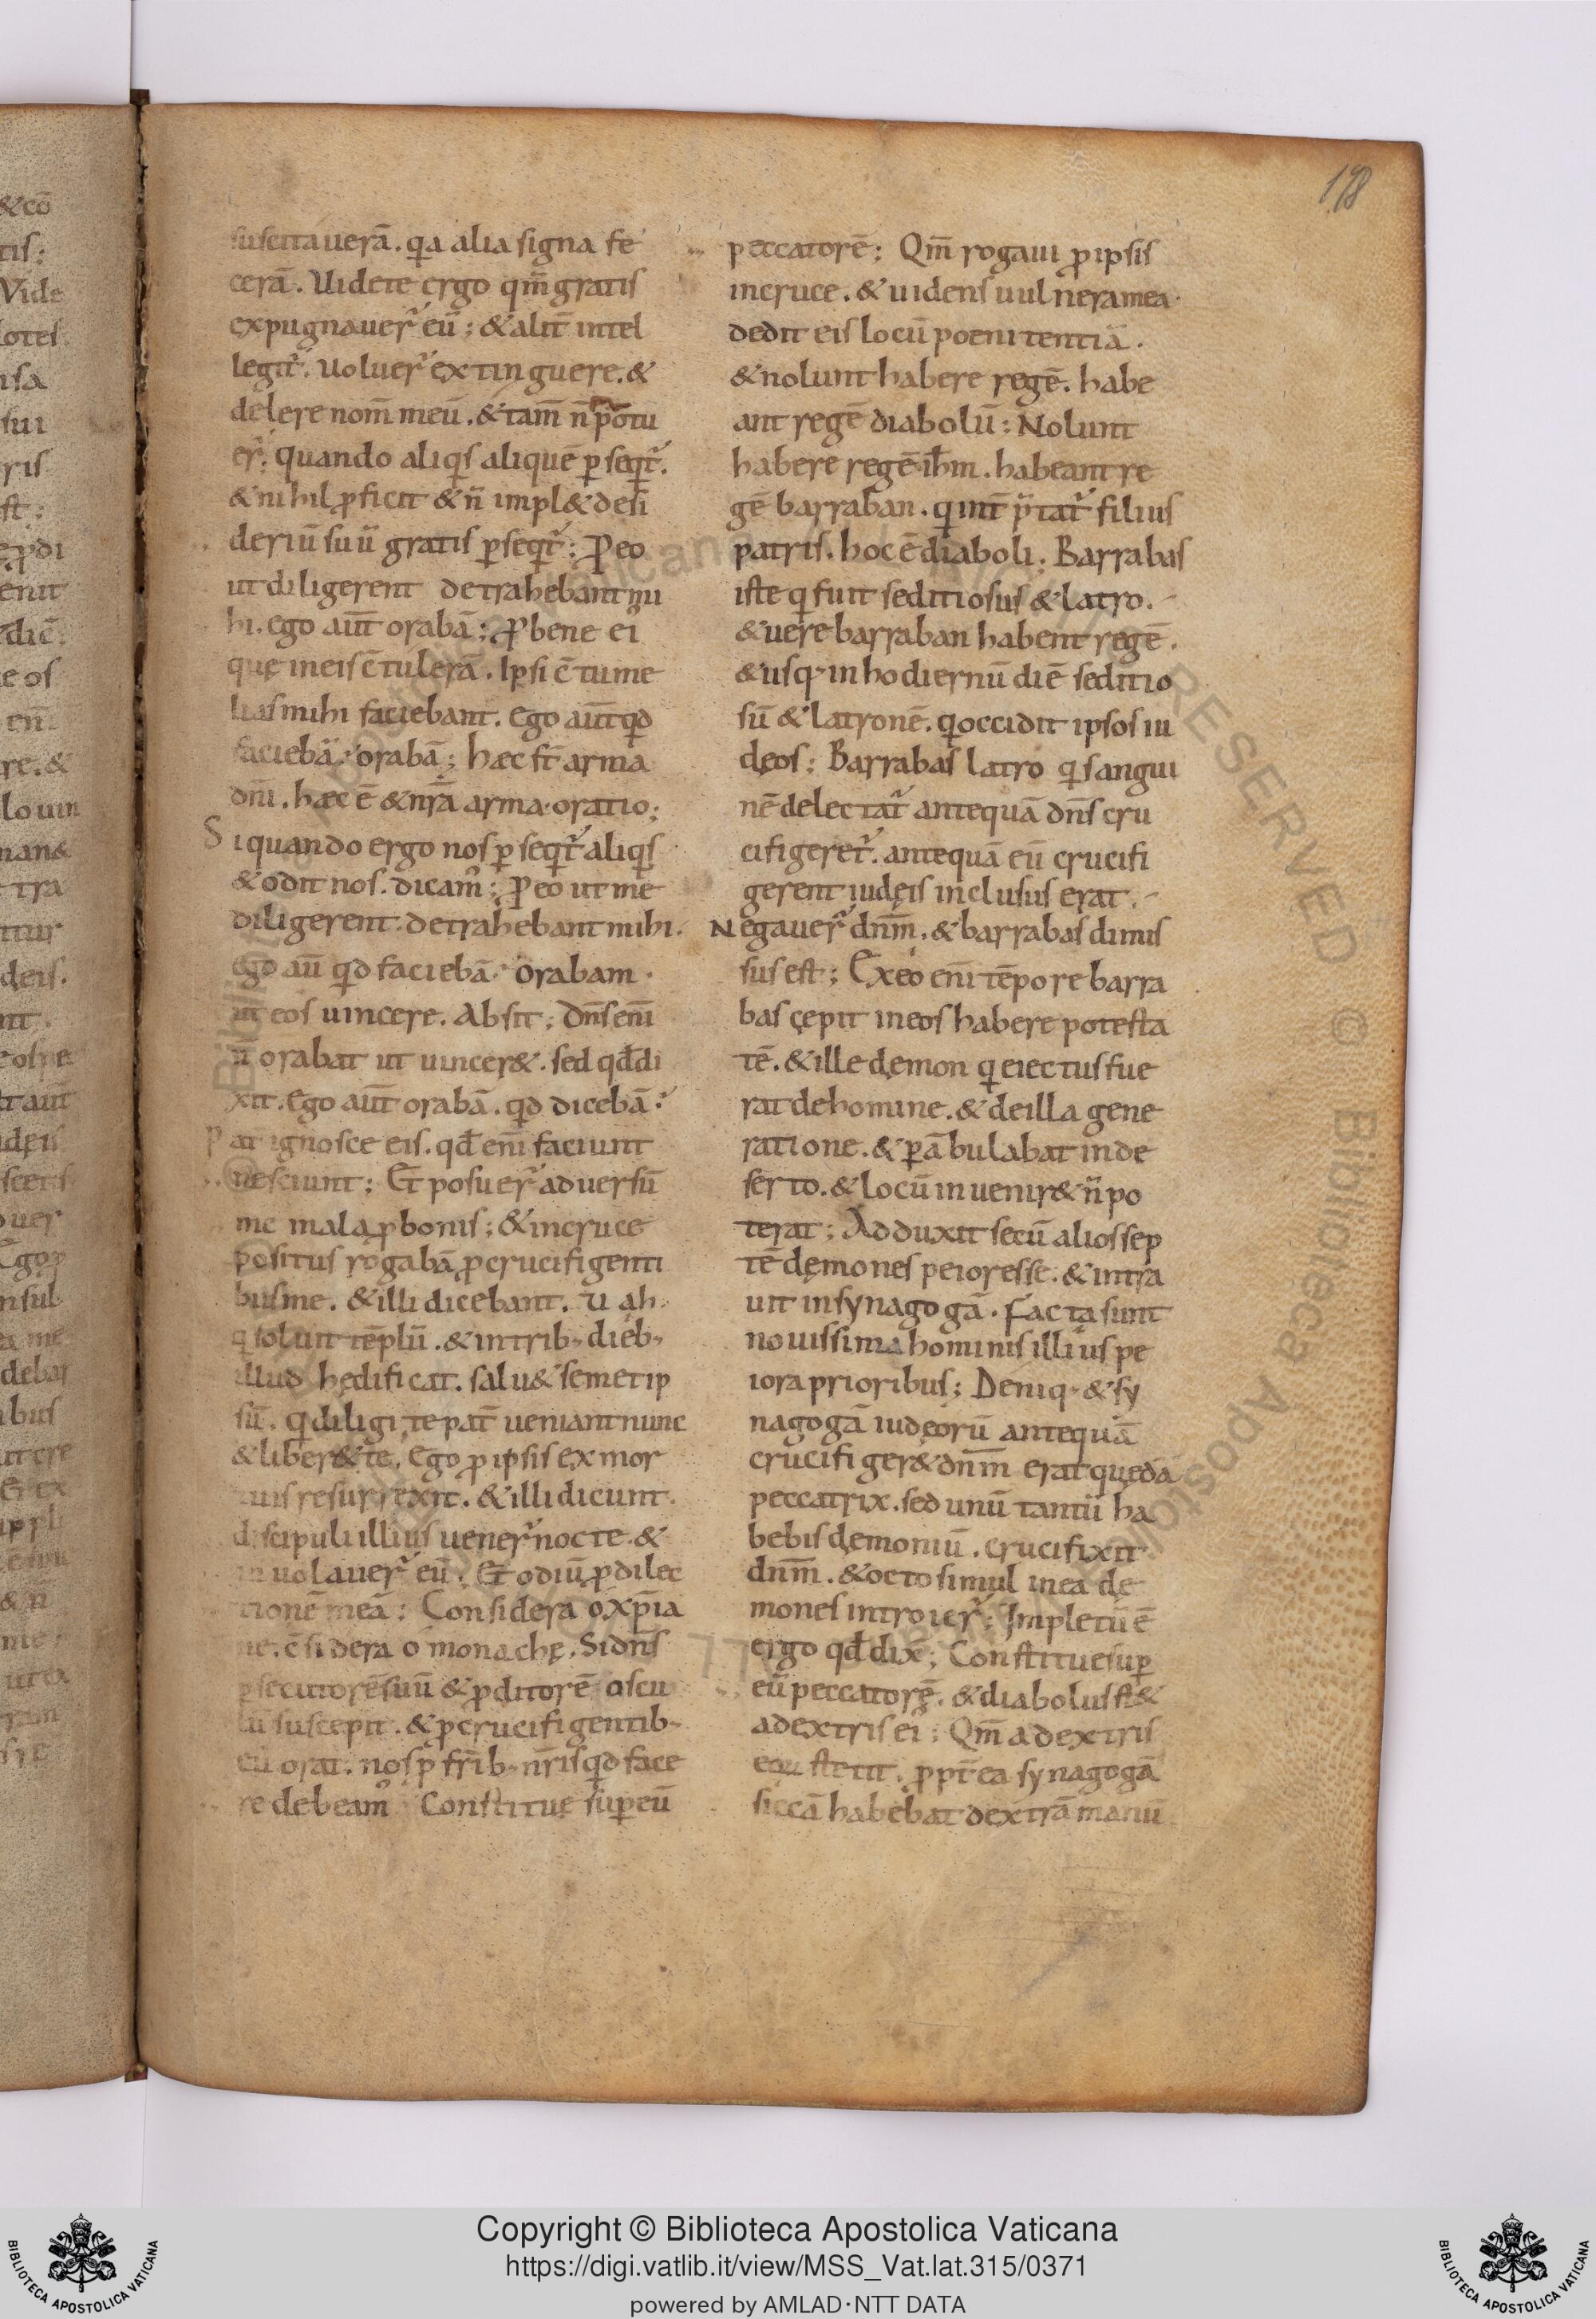 178
suscitauerā. qa alia signa fe
cerā. Uidete ergo qm̄ gratis
expugnauer̄ eū; & alit̄ intel
legit̄. Uoluer̄ extinguere. &
delere nom̄ meū. & tam̄ n̄ potu
er̄; quando aliqis aliquē p̱seqit̄.
& nihil ꝓficit & n̄ impl& desi
deriū suū gratis p̱seqit̄; Ꝓ eo
ut diligerent detrahebant mi
hi. ego aūt orabā; Ꝓ bene ei
quę in eis c̄tulerā. Ipsi c̄tume
lias mihi faciebant. ego aūt qd
faciebā? orabā; hæc st̄ arma
dn̄i. hæc ē & nr̄a arma. oratio;
Si quando ergo nos p̱seqit̄ aliqis
& odit nos. dicam̓; Ꝓ eo ut me
diligerent. detrahebant mihi.
ego aū qd faciebā? orabam.
ut eos uincere. Absit; Dn̄s enī
n̄ orabat ut uincer&. sed qđ di
xit. ego aūt orabā. qd dicebā?
Pat ignosce eis. qđ enī faciunt
nesciunt; Et posuer̄ aduersū
me mala ꝓ bonis; & in cruce
positus rogabā ꝓ crucifigenti
bus me. & illi dicebant. U ah.
q soluit tēplū. & in trib; dieb;
illud hędificat. salu& semetip
sū. q diligit te pat̄ ueniant nunc
& liber& te. Ego ꝓ ipsis ex mor
tuis resurrexit. & illi dicunt.
discipuli illius uener̄ nocte. &
inuolauer̄ eū. Et odiū ꝓ dilec
tionē meā; Considera o xp̄ia
ne. c̄sidera o monachę. Si dn̄s
p̱secutorē suū & ꝓditorē oscu
lū suscepit. & ꝓ crucifigentib;
eū orat. nos ꝓ fr̄ib; nr̄is qd face
re debeam̓ Constitue sup̱ eū
peccatorē; Qm̄ rogaui ꝓ ipsis
in cruce. & uidens uulnera mea.
dedit eis locū poenitentiā.
& nolunt habere regē. habe
ant regē diabolū; Nolunt
habere regē ih̄m. habeant re
gē barraban. q int̄p̱tat̄ filius
patris. hoc ē diaboli; Barrabas
iste q fuit seditiosus & latro.
& uere barraban habent regē.
& usq; in hodiernū diē seditio
sū & latronē. q occidit ipsos iu
dęos; Barrabas latro q sangui
nē delectat̄ antequā dn̄s cru
cifigeret̄. antequā eū crucifi
gerent iudęis inclusus erat.
Negauer̄ dn̄m̄. & barrabas dimis
sus est; Ex eo enī tēpore barra
bas cępit in eos habere potesta
tē. & ille dęmon q eiectus fue
rat de homine. & de illa gene
ratione. & p̱ābulabat in de
serto. & locū inuenir& n̄ po
terat; Adduxit secū alios sep
tē dęmones peiores se. & intra
uit in synagogā. Facta sunt
nouissima hominis illius pe
iora prioribus; Deniq; & sy
nagogā iudęorū antequā
crucifiger& dn̄m̄ erat quędā
peccatrix. sed unū tantū ha
bebis dęmoniū. crucifixit
dn̄m̄. & octo simul in ea dę
mones introier̄; Impletū ē
ergo qđ dix̄; Constitue sup̱
eū peccatorē. & diabolus st&
a dextris ei; Qm̄ a dextris
stetit. ꝓpt̄ea synagogā
siccā habebat dextrā manū
Copyright © Biblioteca Apostolica Vaticana
https://digi.vatlib.it/view/MSS_Vat.lat.315/0371
powered by AMLAD·NTT DATA
BIBLIOTECA APOSTOLICA VATICANA
BIBLIOTECA APOSTOLICA VATICANA